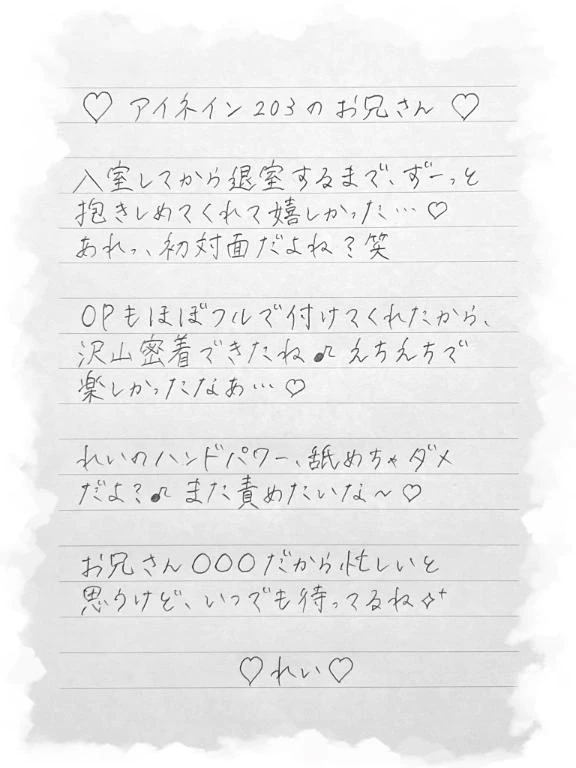 ♡ アイネイン203のお兄さん ♡
入室してから退室するまで、ずーっと
抱きしめてくれて嬉しかった…♡
あれっ、初対面だよね？笑
OPもほぼフルで付けてくれたから、
沢山密着できたね♪えちえちで
楽しかったなあ…♡
れいのハンドパワー、舐めちゃダメ
だよ？♪また責めたいな～♡
お兄さん〇〇〇だから忙しいと
思うけど、いつでも待ってるね✧⁺
♡れい♡